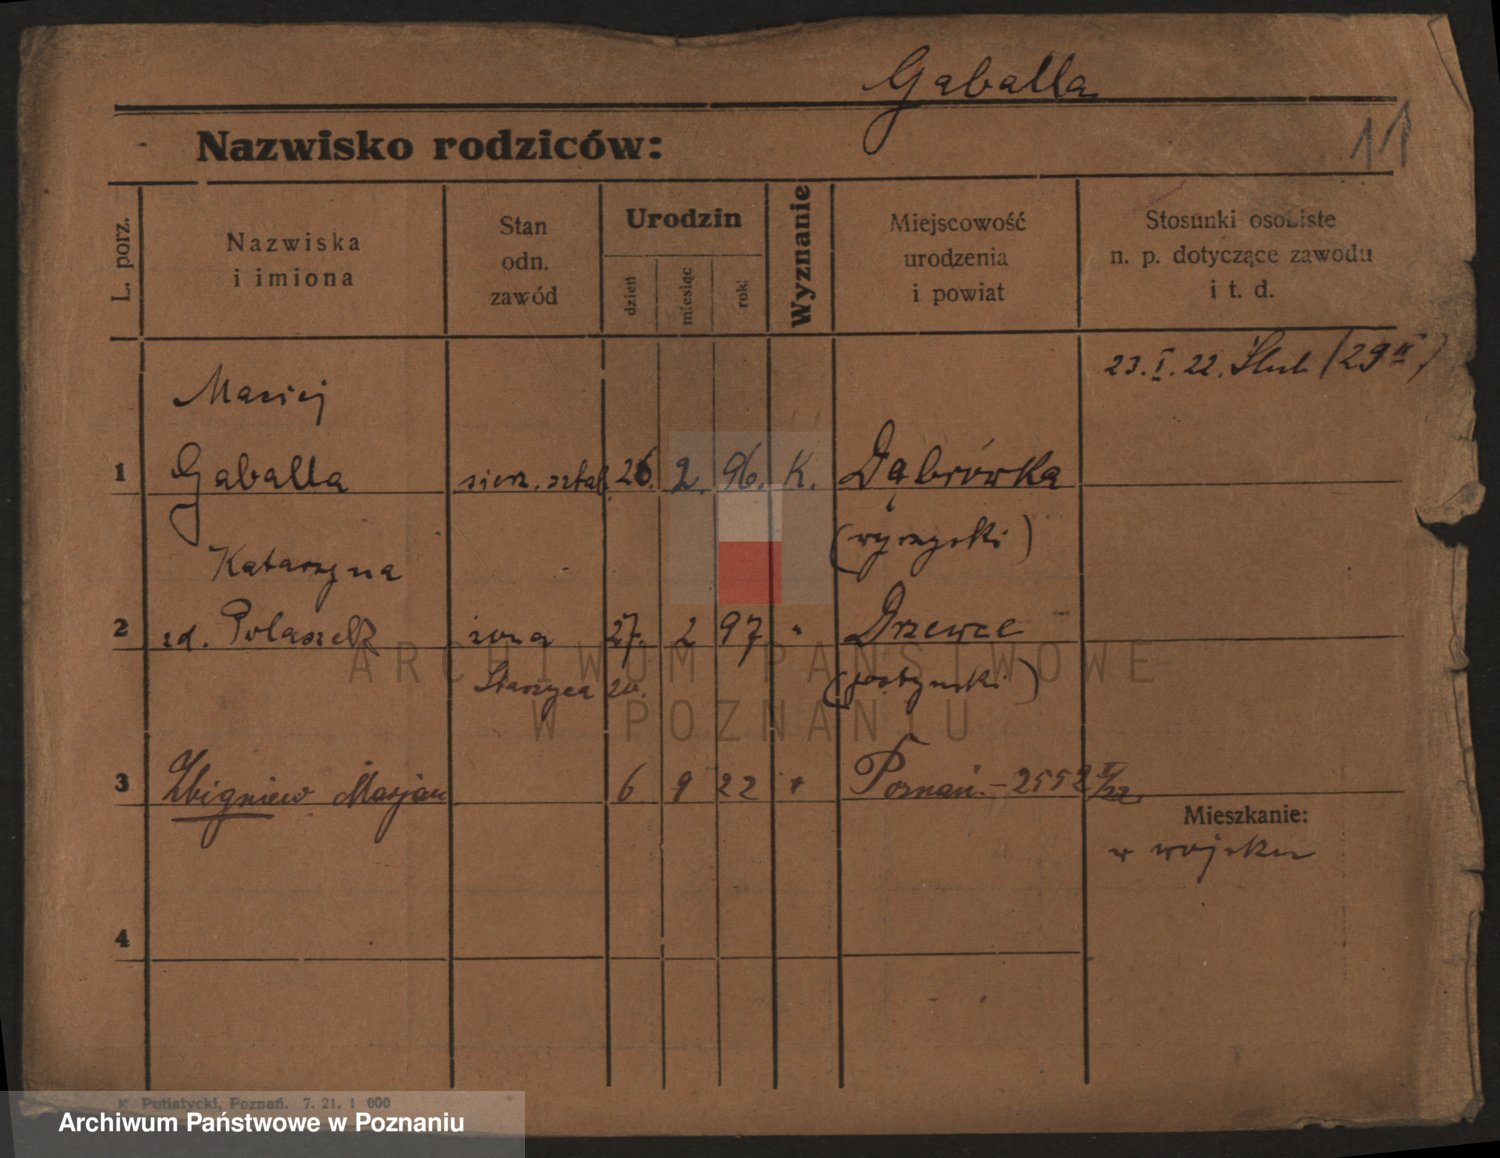 Gaballa
Nazwisko rodziców:
11
L. porz.
Nazwiska
i imiona
Stan
odn.
zawód
Urodzin
dzień
miesiąc
rok
Wyznanie
Miejscowość
urodzenia
i powiat
Stosunki osobiste
n. p. dotyczące zawodu
i t. d.
23. I. 22. Ślub (29 II)
Maciej
1 Gaballa sierż. sztab. 26. 2. 96. K. Dąbrówka
(wyrzyski)
Katarzyna
2 zd. Polaszek żona 27. 2 97 " Drzewce
20. (gostyński)
3 Zbigniew Marjan 6 9 22 " Poznań – 2552
Mieszkanie:
w wojsku
4
ARCHIWUM PAŃSTWOWE
W POZNANIU
N. Putiatycki, Poznań. 7. 21. 1 000
Archiwum Państwowe w Poznaniu